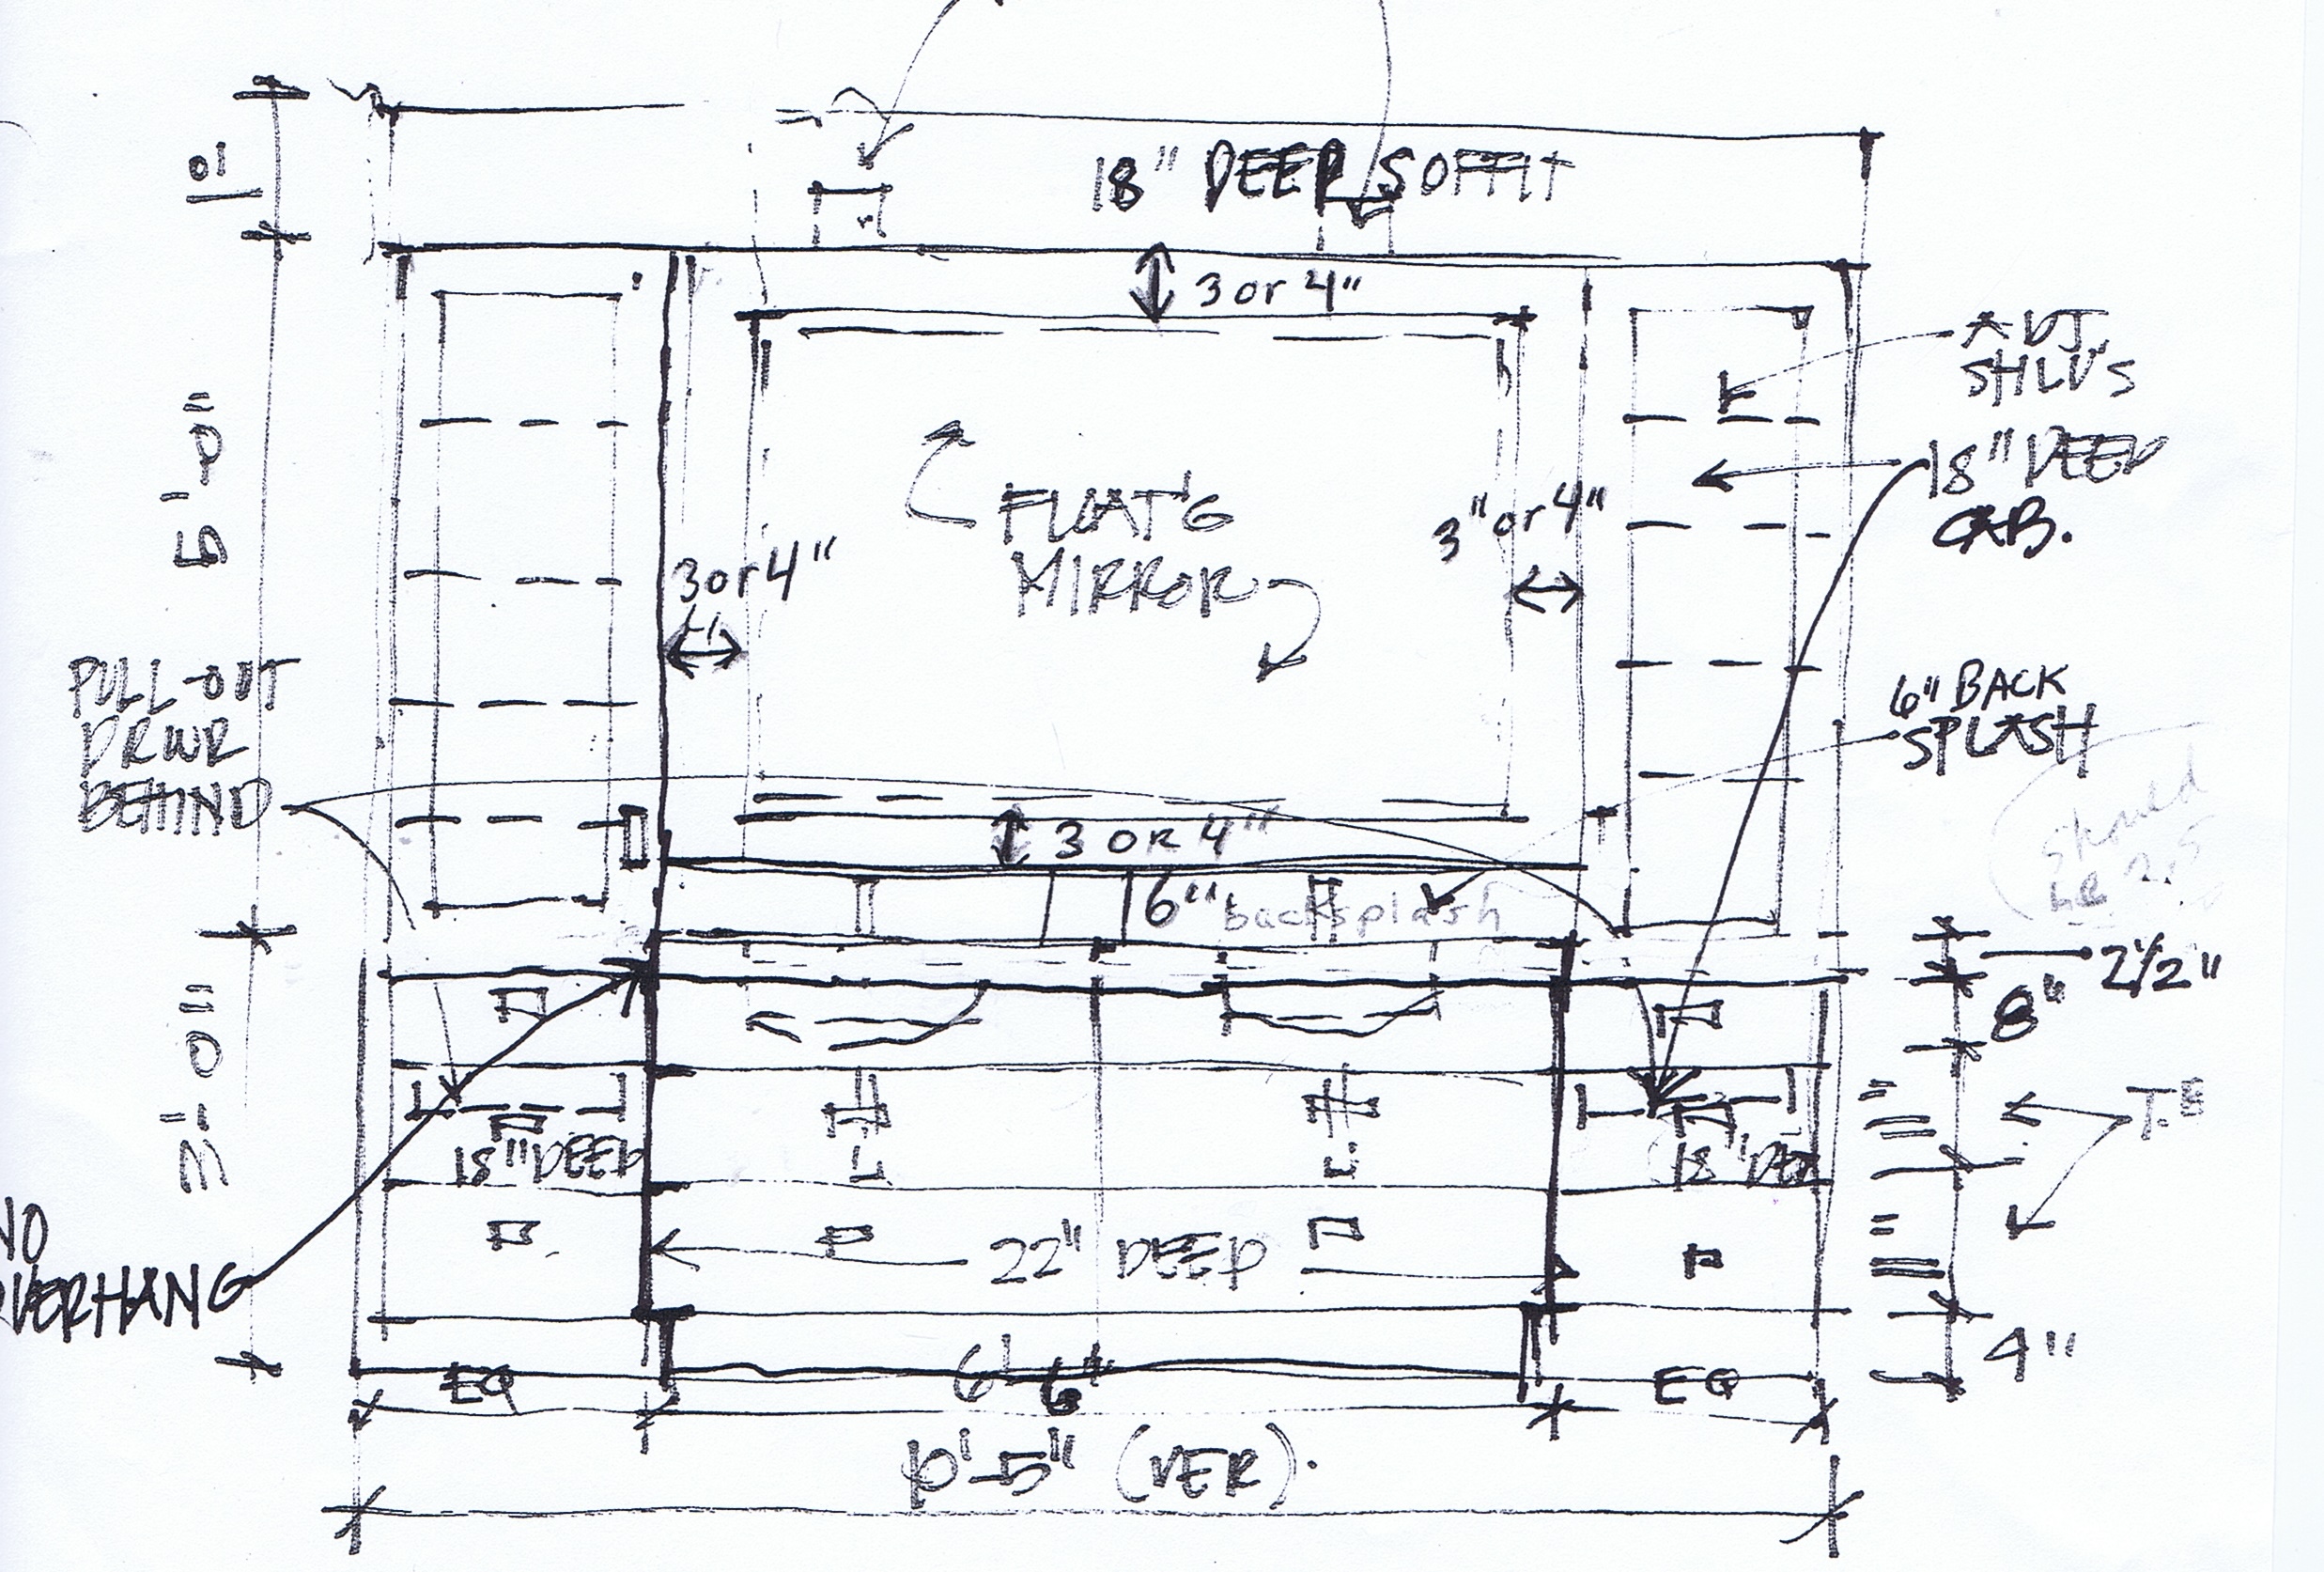 18" DEEP SOFFIT
3 or 4"
ADJ.
SHLV'S
5'-0"
18" DEEP
CAB.
FLOAT'G
MIRROR
3" or 4"
3 or 4"
PULL-OUT
DRWR
BEHIND
6" BACK
SPLASH
should
be 2.5
3 OR 4"
6" backsplash
2½"
8"
3'-0"
18" DEEP
18" DEE
NO
OVERHANG
22" DEEP
4"
EQ
6'-6"
EQ
10'-5" (VER).